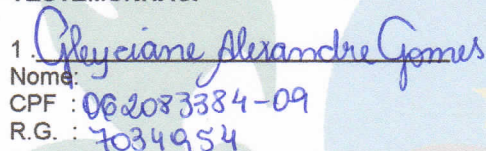 1. Gleyciane Alexandre Gomes
Nome:
CPF : 062083384-09
R.G. : 7034954